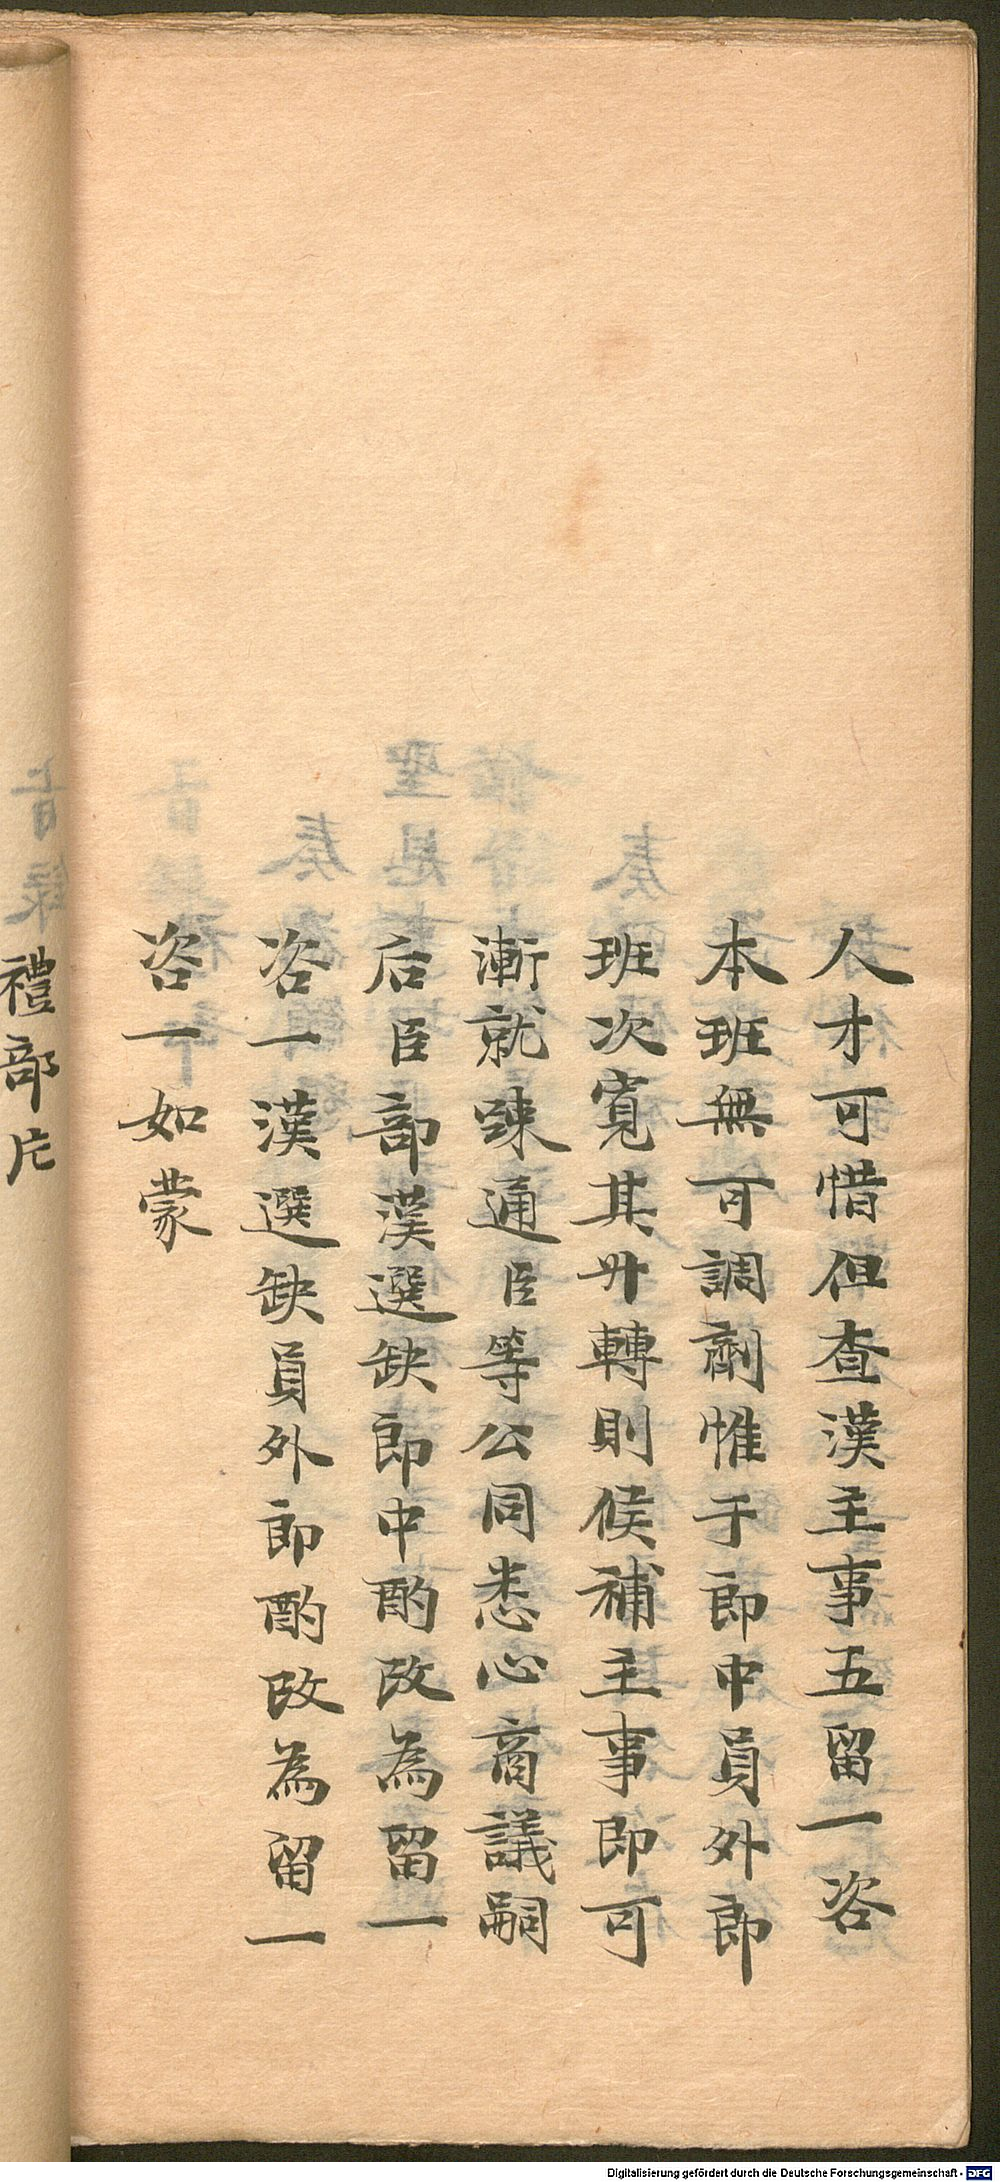 人才可惜但查漢主事五留一咨
本班無可調劑惟于郎中員外郎
班次寬其升轉則候補主事即可
漸就踈通臣等公同悉心商議嗣
后臣部漢選缺郎中酌改為留一
咨一漢選缺員外郎酌改為留一
咨一如蒙
禮部片
Digitalisierung gefördert durch die Deutsche Forschungsgemeinschaft - DFG